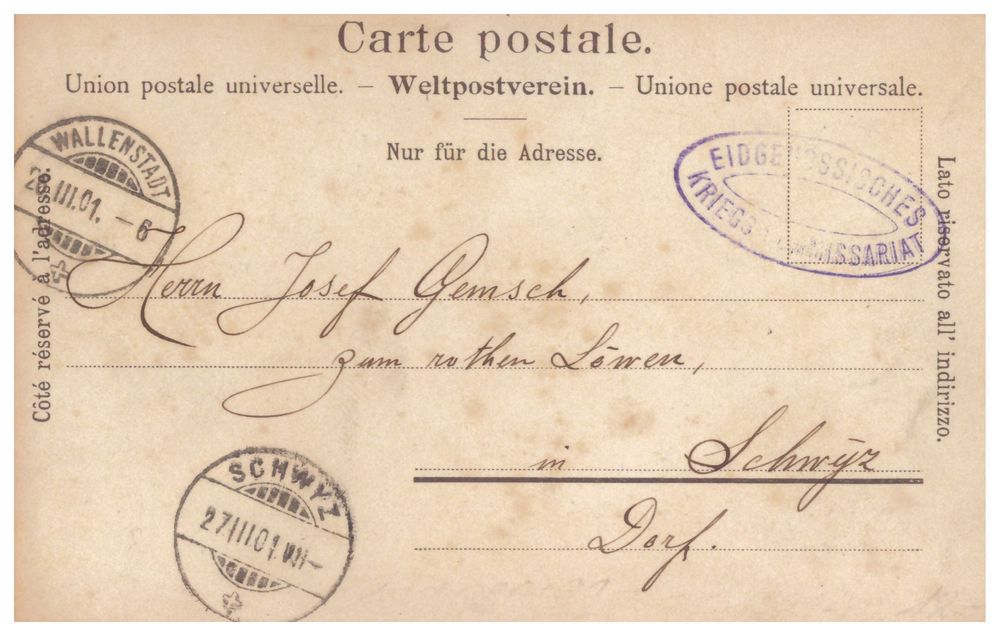 Carte postale.
Union postale universelle. – Weltpostverein. – Unione postale universale.
Nur für die Adresse.
WALLENSTADT
26.III.01. – 6
EIDGENÖSSISCHES
KRIEGSKOMMISSARIAT
Côté réservé à l'adresse.
Lato riservato all' indirizzo.
Herrn Josef Gemsch,
zum rothen Löwen,
in Schwÿz
Dorf.
SCHWYZ
27 III 01. VII –